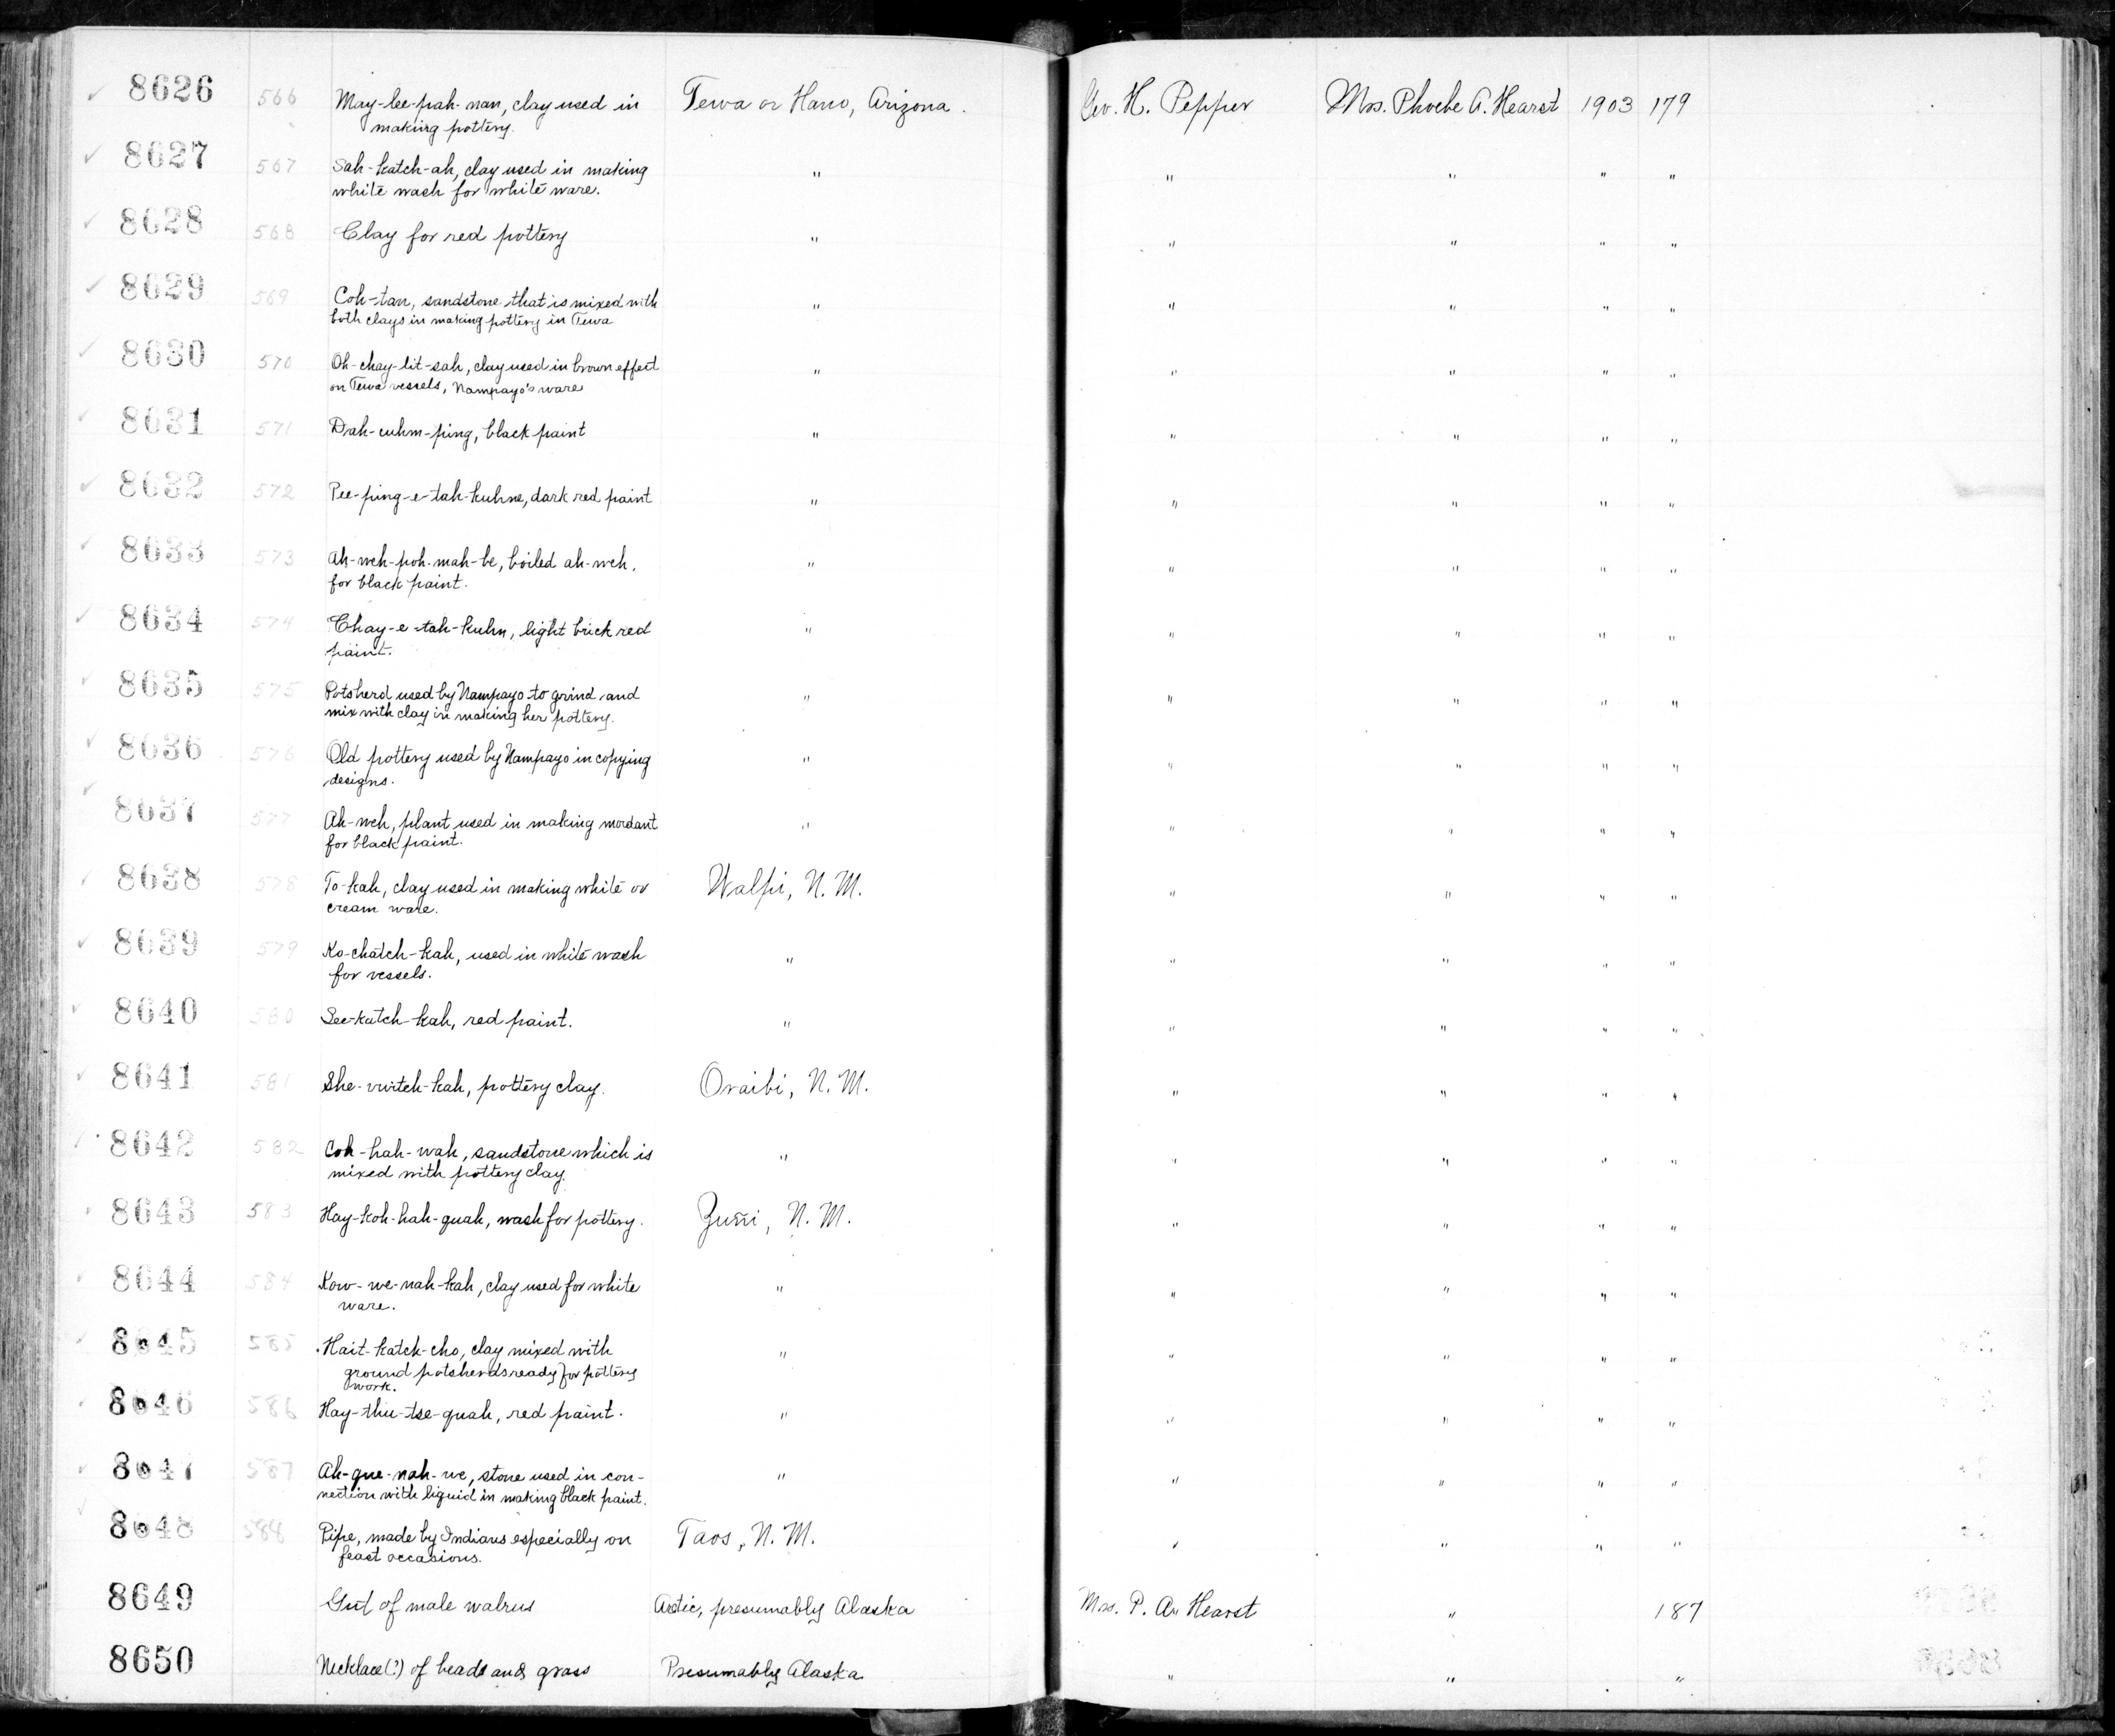 8626 566 May-lee-pah-nan, clay used in Tewa or Hano, Arizona. Geo. H. Pepper Mrs. Phoebe A. Hearst 1903 179
making pottery.
8627 567 Sah-katch-ah, clay used in making " " " " "
white wash for white ware.
8628 568 Clay for red pottery " " " " "
8629 569 Coh-tan, sandstone that is mixed with " " " " "
both clays in making pottery in Tewa
8630 570 Oh-chay-lit-sah, clay used in brown effect " " " " "
on Tewa vessels, Nampayo's ware
8631 571 Dah-cuhm-ping, black paint " " " " "
8632 572 Pee-ping-e-tah-kuhne, dark red paint " " " " "
8633 573 Ah-weh-poh-mah-be, boiled ah-weh, " " " " "
for black paint.
8634 574 Chay-e-tah-kuhn, light brick red " " " " "
paint.
8635 575 Potsherd used by Nampayo to grind and " " " " "
mix with clay in making her pottery.
8636 576 Old pottery used by Nampayo in copying " " " " "
designs.
8637 577 Ah-weh, plant used in making mordant " " " " "
for black paint.
8638 578 To-kah, clay used in making white or Walpi, N. M. " " " "
cream ware.
8639 579 Ko-chatch-kah, used in white wash " " " " "
for vessels.
8640 580 See-katch-kah, red paint. " " " " "
8641 581 She-vwitch-kah, pottery clay. Oraibi, N. M. " " " "
8642 582 Coh-hah-wah, sandstone which is " " " " "
mixed with pottery clay.
8643 583 Hay-koh-hah-quah, wash for pottery. Zuñi, N. M. " " " "
8644 584 Kow-we-nah-kah, clay used for white " " " " "
ware.
8645 585 Hait-katch-cho, clay mixed with " " " " "
ground potsherds ready for pottery
work.
8646 586 Hay-thu-tse-quah, red paint. " " " " "
8647 587 Ah-que-nah-we, stone used in con- " " " " "
nection with liquid in making black paint.
8648 588 Pipe, made by Indians especially on Taos, N. M. " " " "
feast occasions.
8649 Gut of male walrus Arctic, presumably Alaska Mrs. P. A. Hearst " 187
8650 Necklace(?) of beads and grass Presumably Alaska " " "